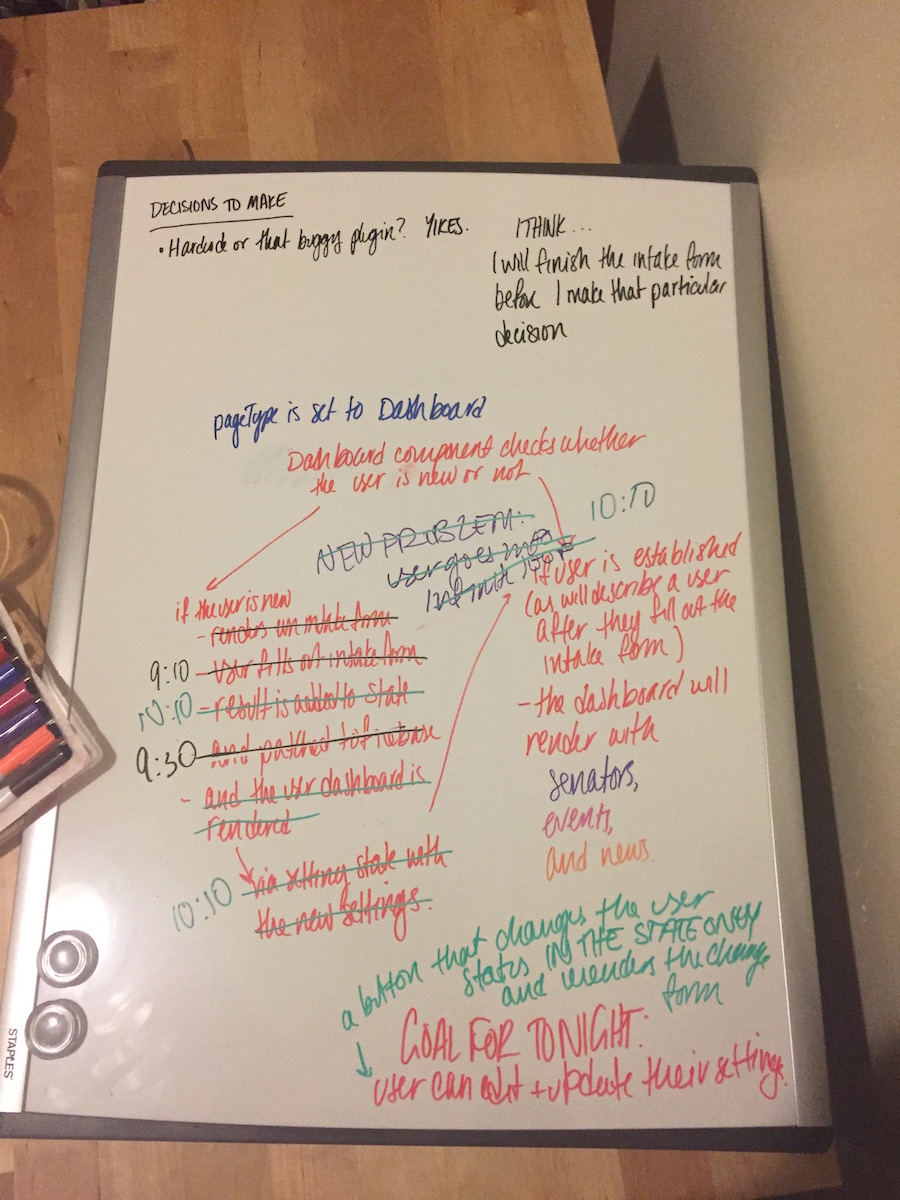 DECISIONS TO MAKE
• Hardcode or that buggy plugin? YIKES.
I THINK...
I will finish the intake form
before I make that particular
decision
pageType is set to Dashboard
Dashboard component checks whether
the user is new or not
10:10
NEW PROBLEM:
user goes into
infinite loop
if the user is new
- renders an intake form
9:10 - user fills out intake form
10:10 - result is added to state
9:30 - and patched to firebase
- and the user dashboard is
rendered
10:10 - via setting state with
the new settings.
if user is established
(as will describe a user
after they fill out the
intake form)
- the dashboard will
render with
senators,
events,
and news.
a button that changes the user
status IN THE STATE ONLY
and renders the change
form
GOAL FOR TONIGHT:
user can edit + update their settings.
STAPLES